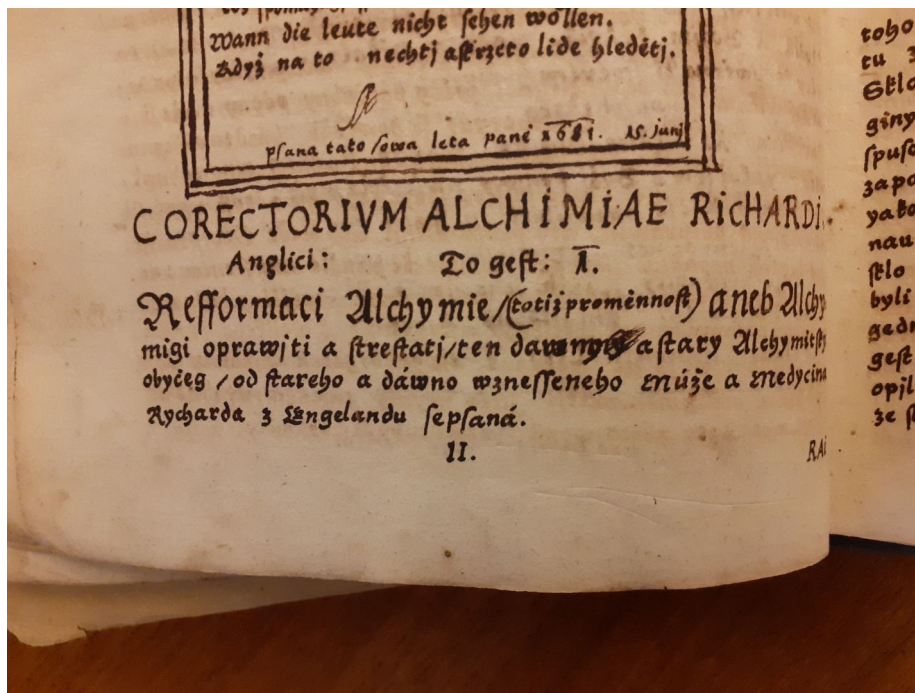 Wann die leute nicht sehen wöllen.
Když na to nechtj astrzcto lide hledětj.
psana tato sowa leta pane 1681. 15. junj
CORECTORIVM ALCHIMIAE RICHARDI.
Anglici: To gest: I.
Refformaci Alchymie/(totiž proměnnost) aneb Alchy
migi oprawjti a strestatj/ten a stary Alchymitsk
obyčeg/od stareho a dáwno wznesseneho Múže a Medycina
Rycharda z Engelandu sepsaná.
II.
RAI
toho
tu
Sklo
giny
spuso
zapa
yako
nau
sklo
byli
gedn
gest
opjl
že s